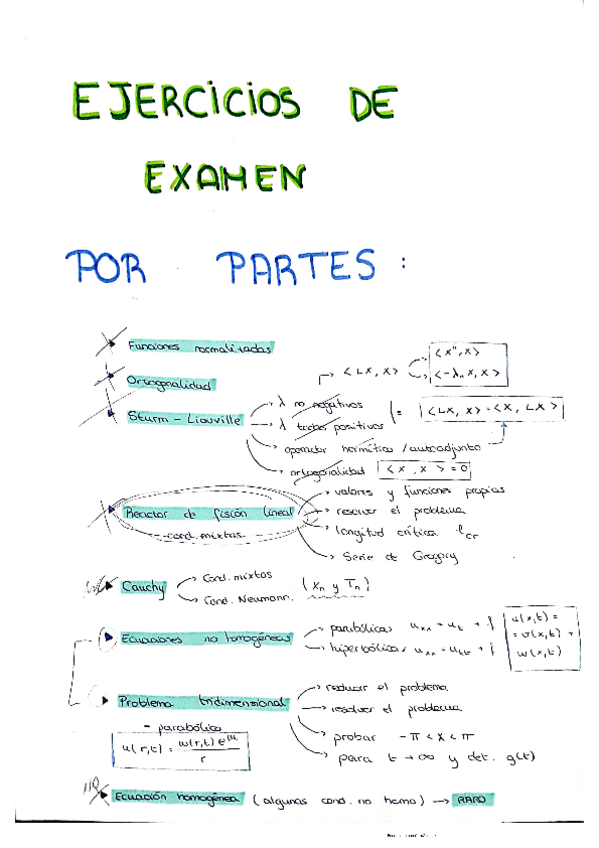 EJERCICIOS DE
EXAMEN
POR PARTES:
Funciones normalizadas
Ortogonalidad
Sturm - Liouville
→ λ no negativos
→ λ todos positivos
→ operador hermítico / autoadjunto
→ ortogonalidad <x, x> = 0
→ <LX, X>
<x", x>
<-λn x, x>
= <LX, X> - <X, LX>
Reactor de fisión lineal
--cond. mixtas.--
→ valores y funciones propias
→ resolver el problema
→ longitud crítica lcr
→ Serie de Gregory
Cauchy
→ Cond. mixtas
→ Cond. Neumann.
(Xn y Tn)
Ecuaciones no homogéneas
→ parabólicas uxx = ut + f
→ hiperbólicas uxx = utt + f
u(x,t) =
= v(x,t) +
w(x,t)
Problema tridimensional
- parabólico
u(r,t) =
r
→ reducir el problema
→ resolver el problema
→ probar -π < x < π
→ para t → ∞ y det. g(t)
Ecuación homogénea (algunas cond. no homo) → RARO